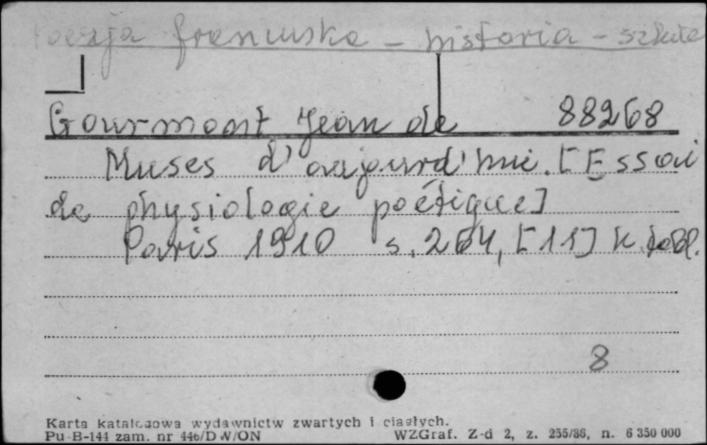 Poezja francuska - historia - szkice
Gourmont Jean de 88268
Muses d'aujourd'hui. [Essai
de physiologie poétique]
Paris 1910 s. 264, [11] k. tabl.
8
Karta katalogowa wydawnictw zwartych i ciągłych.
Pu-B-144 zam. nr 446/DW/ON WZGraf. Z-d 2, z. 255/86, n. 6 350 000